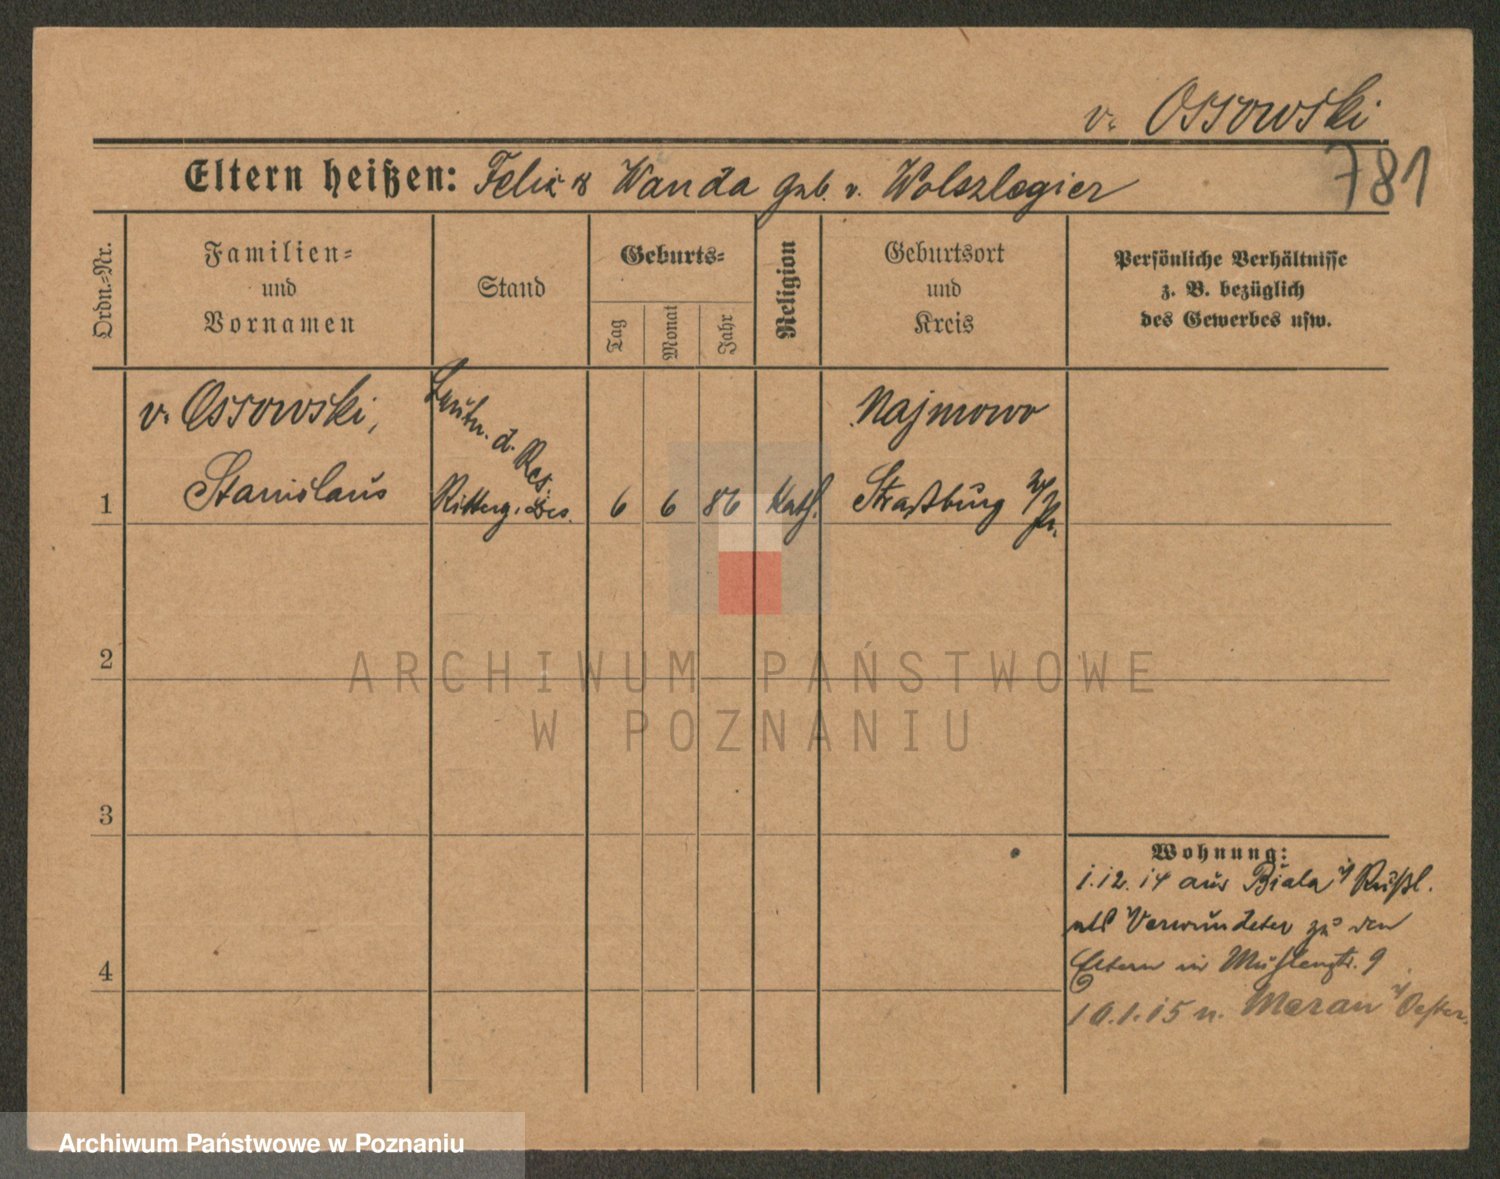 v. Ossowski
781
Eltern heißen: Felix & Wanda geb. v. Wolszlegier
Ordn.-Nr.
Familien-
und
Vornamen
Stand
Geburts-
Tag
Monat
Jahr
Religion
Geburtsort
und
Kreis
Persönliche Verhältnisse
z. B. bezüglich
des Gewerbes usw.
v. Ossowski,
Stanislaus
Leutn. d. Res.
Ritterg. Bes.
6 6 86
Kath.
Najmowo
Straßburg W/Pr.
1
2
3
4
Wohnung:
1.12.14 aus Biala i/Rußl.
als Verwundeter zu den
Eltern in Mühlenstr. 9
10.1.15 n. Meran i/Oester.
ARCHIWUM PAŃSTWOWE
W POZNANIU
Archiwum Państwowe w Poznaniu